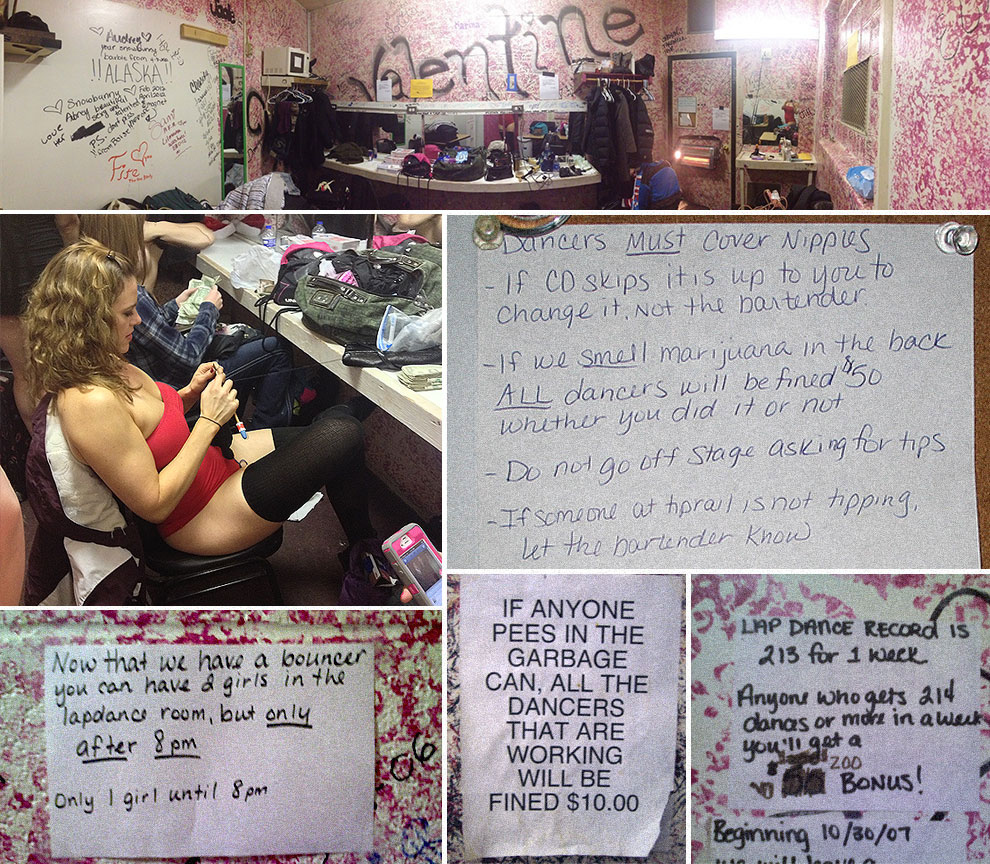 Valentine
Audrey
your snowbunny
barbie from
!!ALASKA!!
Feb 2012
Snowbunny
Abrey beautiful
sexy and talented
Love her
PS- don't piss
Fire
Dancers Must Cover Nipples
- If CD skips it is up to you to
change it, Not the bartender
- If we smell marijuana in the back
ALL dancers will be fined $50
whether you did it or not
- Do not go off stage asking for tips
- If someone at tiprail is not tipping,
let the bartender know
Now that we have a bouncer
you can have 2 girls in the
lapdance room, but only
after 8pm
Only 1 girl until 8pm
IF ANYONE
PEES IN THE
GARBAGE
CAN, ALL THE
DANCERS
THAT ARE
WORKING
WILL BE
FINED $10.00
LAP DANCE RECORD IS
213 for 1 week
Anyone who gets 214
dances or more in a week
you'll get a
200
BONUS!
Beginning 10/30/07
we will have a